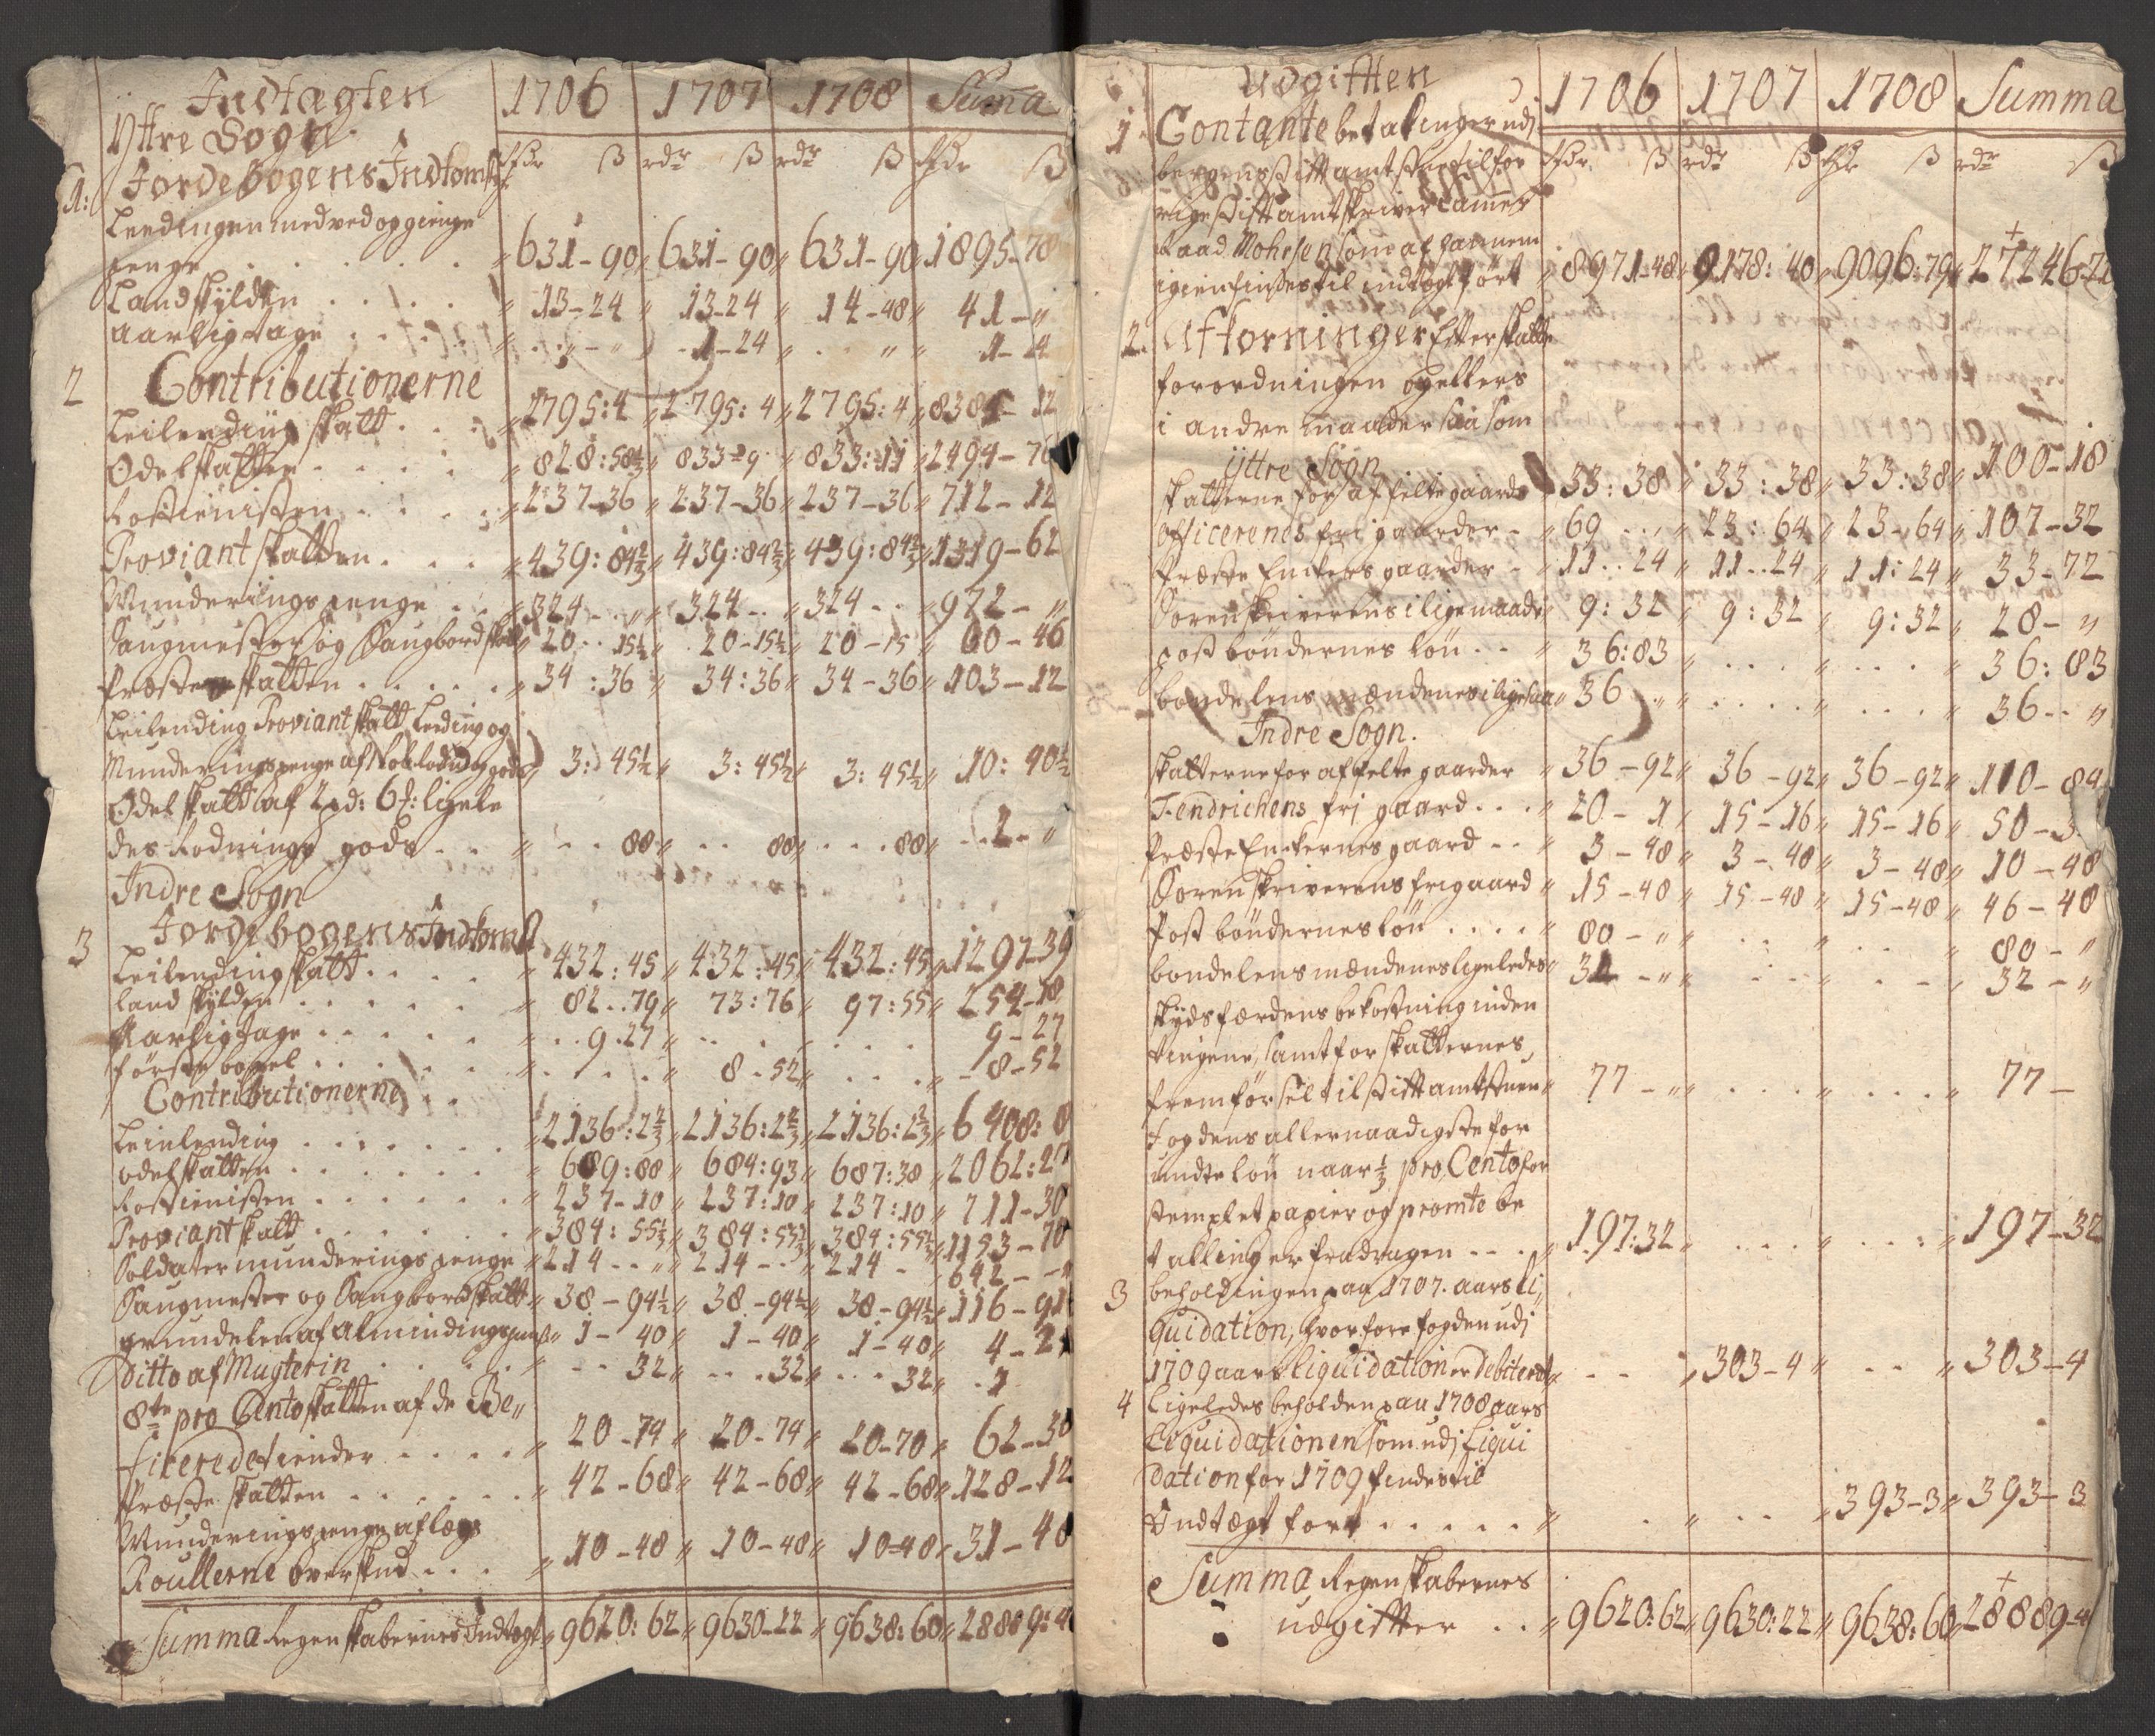 Indtagten 1706 1707 1708 Suma
Yttre Sogn
1: Jordebogens Indkomst rdr ß rdr ß rdr ß rdr ß
Leedingen med ved og giengs
penge . . . . . 631-90 631-90 631-90 1895-78
Landskylden . . . . 13-24 13-24 14-48 41-"
Aarligtage . . . . " - " 1-24 " " 1-24
2 Contributionerne
Leilending skatt . . . 2795:4 2795:4 2795:4 8385-12
Odelskatten . . . . 828:58½ 833-29 833:11 2494-76
Rostienisten . . . . 237-36 237-36 237-36 712-12
Proviantskatten . . . 439:84⅔ 439:84⅔ 439:84⅔ 1319-62
Munderings penge . . 324 - " 324 - 324 - 972-"
Saugmester og Saugbord skatt 20..15½ 20-15½ 20-15 60-46
Præste skatten . . . . . 34:36 34:36 34-36 103-12
Leilending Proviantskatt Leeding og
Munderingspenge af 3:45½ 3:45½ 3:45½ 10:40½
Odelskatt af 2pd: 6f: ligele
des Rodnings gods . . . . 88 . . 88 . . . 88 . . 2-"
Indre Sogn
3 Jordebogens Indkomst
Leilendingskatt . . . 432:45 432:45 432:45 1297-39
land skylden . . . . 82..79 73:76 97:55 254-18
Aarligtage . . . . . 9.27 . . . . . . 9-27
förstebøxel . . . . . . . . 8-52 . . . . 8-52
Contributionerne
Leinlending . . . . . 2136:2⅔ 2136:2⅔ 2136:2⅔ 6408:8
odelskatten . . . . . 689:88 684:93 687:38 2062:27
Rostienisten . . . . . 237-10 237:10 237:10 711-30
Proviantskatt . . . . . 384:55⅓ 384:55⅓ 384:55⅓ 1153-70
Soldater munderings penge 214 - " 214 - 214 - 642 -
Saugmester og Saugbordskatt 38-94½ 38-94½ 38-94½ 116-91
grundeleen af almindings 1-40 1-40 1-40 4-24
Ditto af Mugterin . . . . 32 . . . 32 . . . 32 . 1
8te pro Cento skatten af de Be"
ficerede tiender . . . . 20-74 20-74 20-70 62-30
Præste skatten . . . . . 42-68 42-68 42-68 128-12
Munderingspenge af læg
Roullerne overskud . . . 10-48 10-48 10-48 31-48
Summa Regenskabernes Indtægt 9620:62 9630-22 9638:60 28889:4
Udgifften 1706 1707 1708 Summa
1 Contante betalinger udj
bergens stiftamtstue til for rdr ß rdr ß rdr ß rdr ß
rige stiftamtskriver Cammer
Raad Mohrsen som af hannem
igien findes til indtægt fört 8971-48 9178:40 9096:79 27246-72
2. Afkortninger Effter skatte
forordningen og ellers
i andre maader saa som
Yttre Sogn
skatterne for affelte gaarde 33:38 33:38 33:38 100-18
officerenes fri gaarder - 69 . . " 23:64 23-64 107-32
Præste Enkers gaarder - 11..24 11..24 11:24 33-72
Sorenskriverens i lige maade 9:32 9:32 9:32 28-"
post böndernes lön . . 36:83 . . . . . . . 36:83
bondelens mændenes i lige saa 36 " . . . . . . . 36-"
Indre Sogn.
skatterne for affelte gaarder 36-92 36-92 36-92 110-84
Fendrichens frj gaard . . . 20-1 15-16 15-16 50-3
Præste Enkernes gaard . . 3-48 3-48 3-48 10-48
Sorenskriverens frigaard 15-48 15-48 15-48 46-48
Post böndernes lön . . . . 80-" . . . . 80-"
bondelensmændenes ligeledes 32-" . . . . 32-"
skyds færdens bekostning inden
tingene, samt for skatternes
fremförsel til stiftamtstuen 77-" . . . . . . . 77-
Fogdens allernaadigste for
undte lön naar ½ pro Cento for
stemplet papier og promte be
talling er fradragen . . . 197:32 . . . . . . . 197-32
3 beholdingen paa 1707. aars li,,
quidation, hvorfore fogden udj
1709 aars liquidation er debitert . . 303-4 . . 303-4
4 Ligeledes beholden paa 1708 aars
Liquidationen som udj Liqui
dation for 1709 findes til
Indtægt fört . . . . . . . . 393-3 393-3
Summa Regenskabernes
udgiffter . . 9620:62 9630:22 9638:60 28889-4